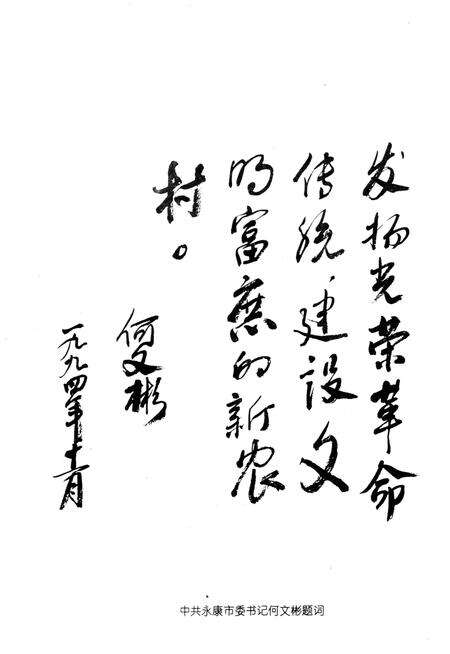 发扬光荣革命
传统，建设文
明富庶的新农
村。
何文彬
一九九四年十一月
中共永康市委书记何文彬题词